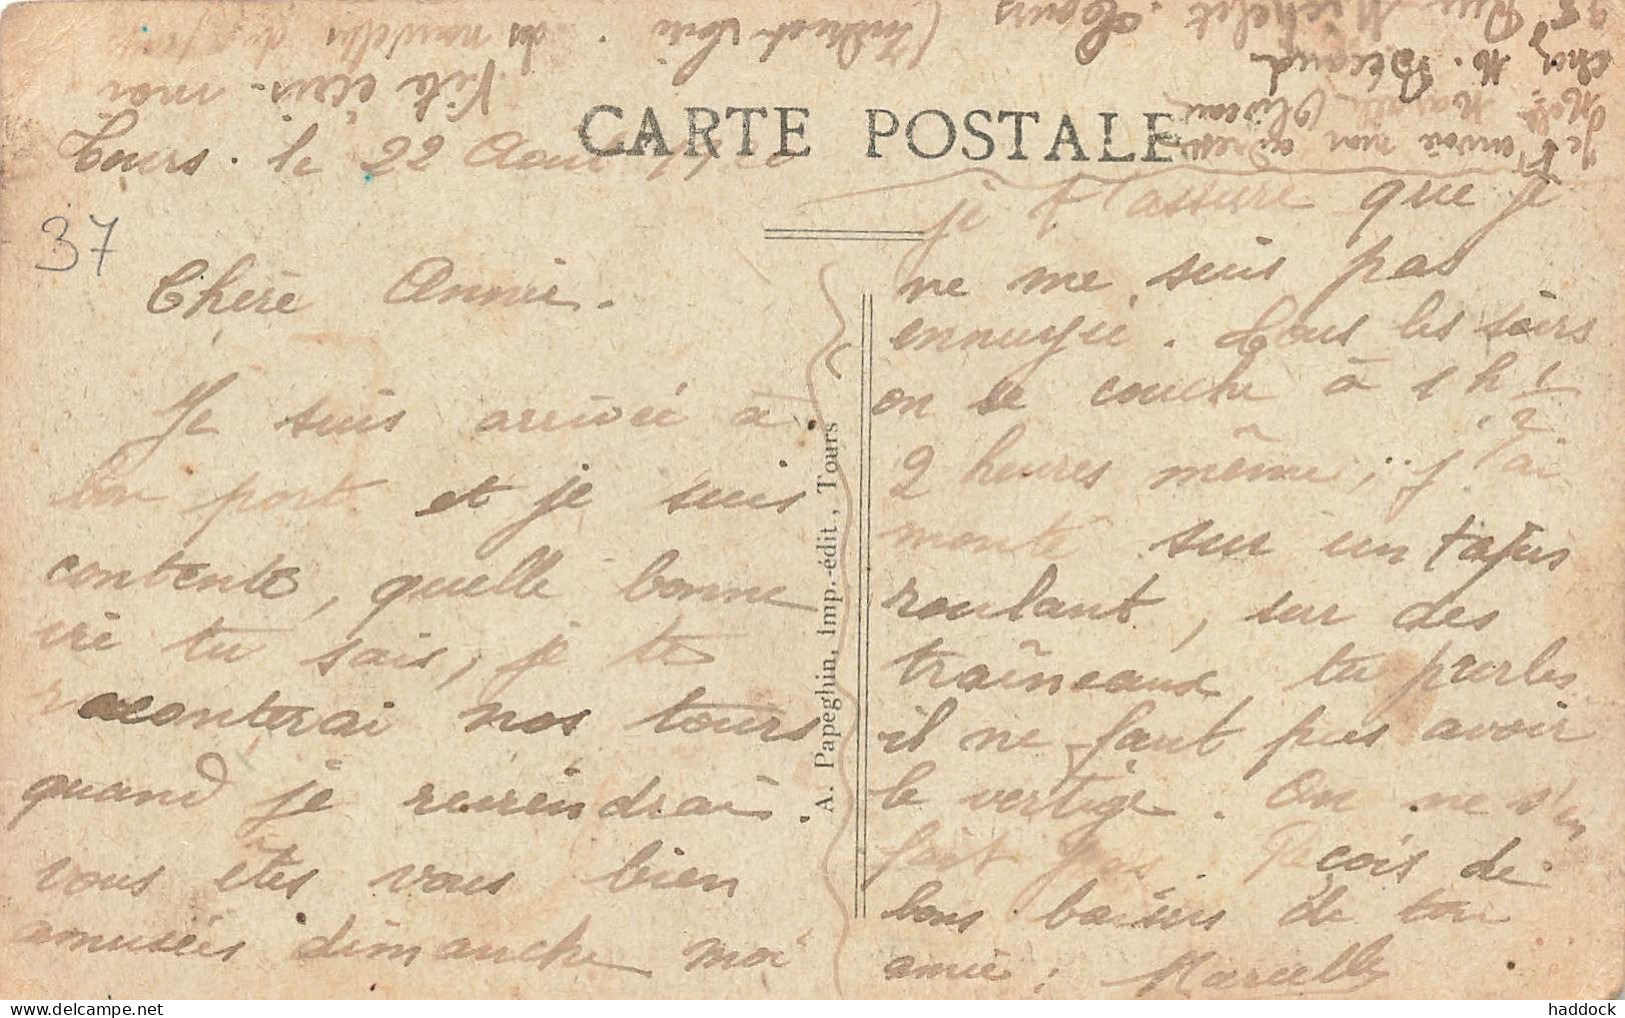 CARTE POSTALE
Tours. le 22 Août
37
Chère Annie.
Je suis arrivée à
bon port et je suis
contente, quelle bonne
vie tu sais, je te
raconterai nos tours
quand je reviendrai.
vous êtes vous bien
amusées dimanche moi
je t'assure que je
ne me suis pas
ennuyée. Tous les soirs
on se couche à 1 h 1/2
2 heures même, j'ai
monté sur un tapis
roulant, sur des
traîneaux, tu parles
il ne faut pas avoir
le vertige. On ne s'en
fait pas. Reçois de
bons baisers de ton
amie. Marcelle
Je t'envoie mon adresse
Melle Marcelle
chez M. Bécaud
95 Rue Michelet. Tours
(Indre et Loire
Vite écris-moi
des nouvelles
A. Papeghin, Imp.-édit., Tours
haddock